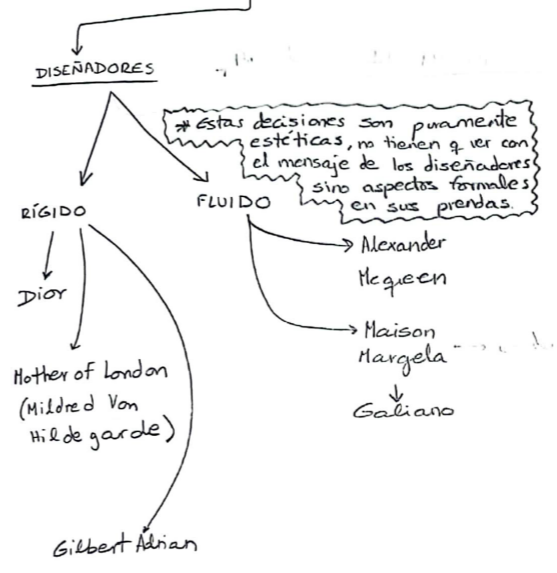 DISEÑADORES
* Estas decisiones son puramente
estéticas, no tienen q ver con
el mensaje de los diseñadores
sino aspectos formales
en sus prendas.
RÍGIDO
FLUIDO
Dior
Mother of London
(Mildred Von
Hildegarde)
Gilbert Adrian
Alexander
Mcqueen
Maison
Margela
Galiano